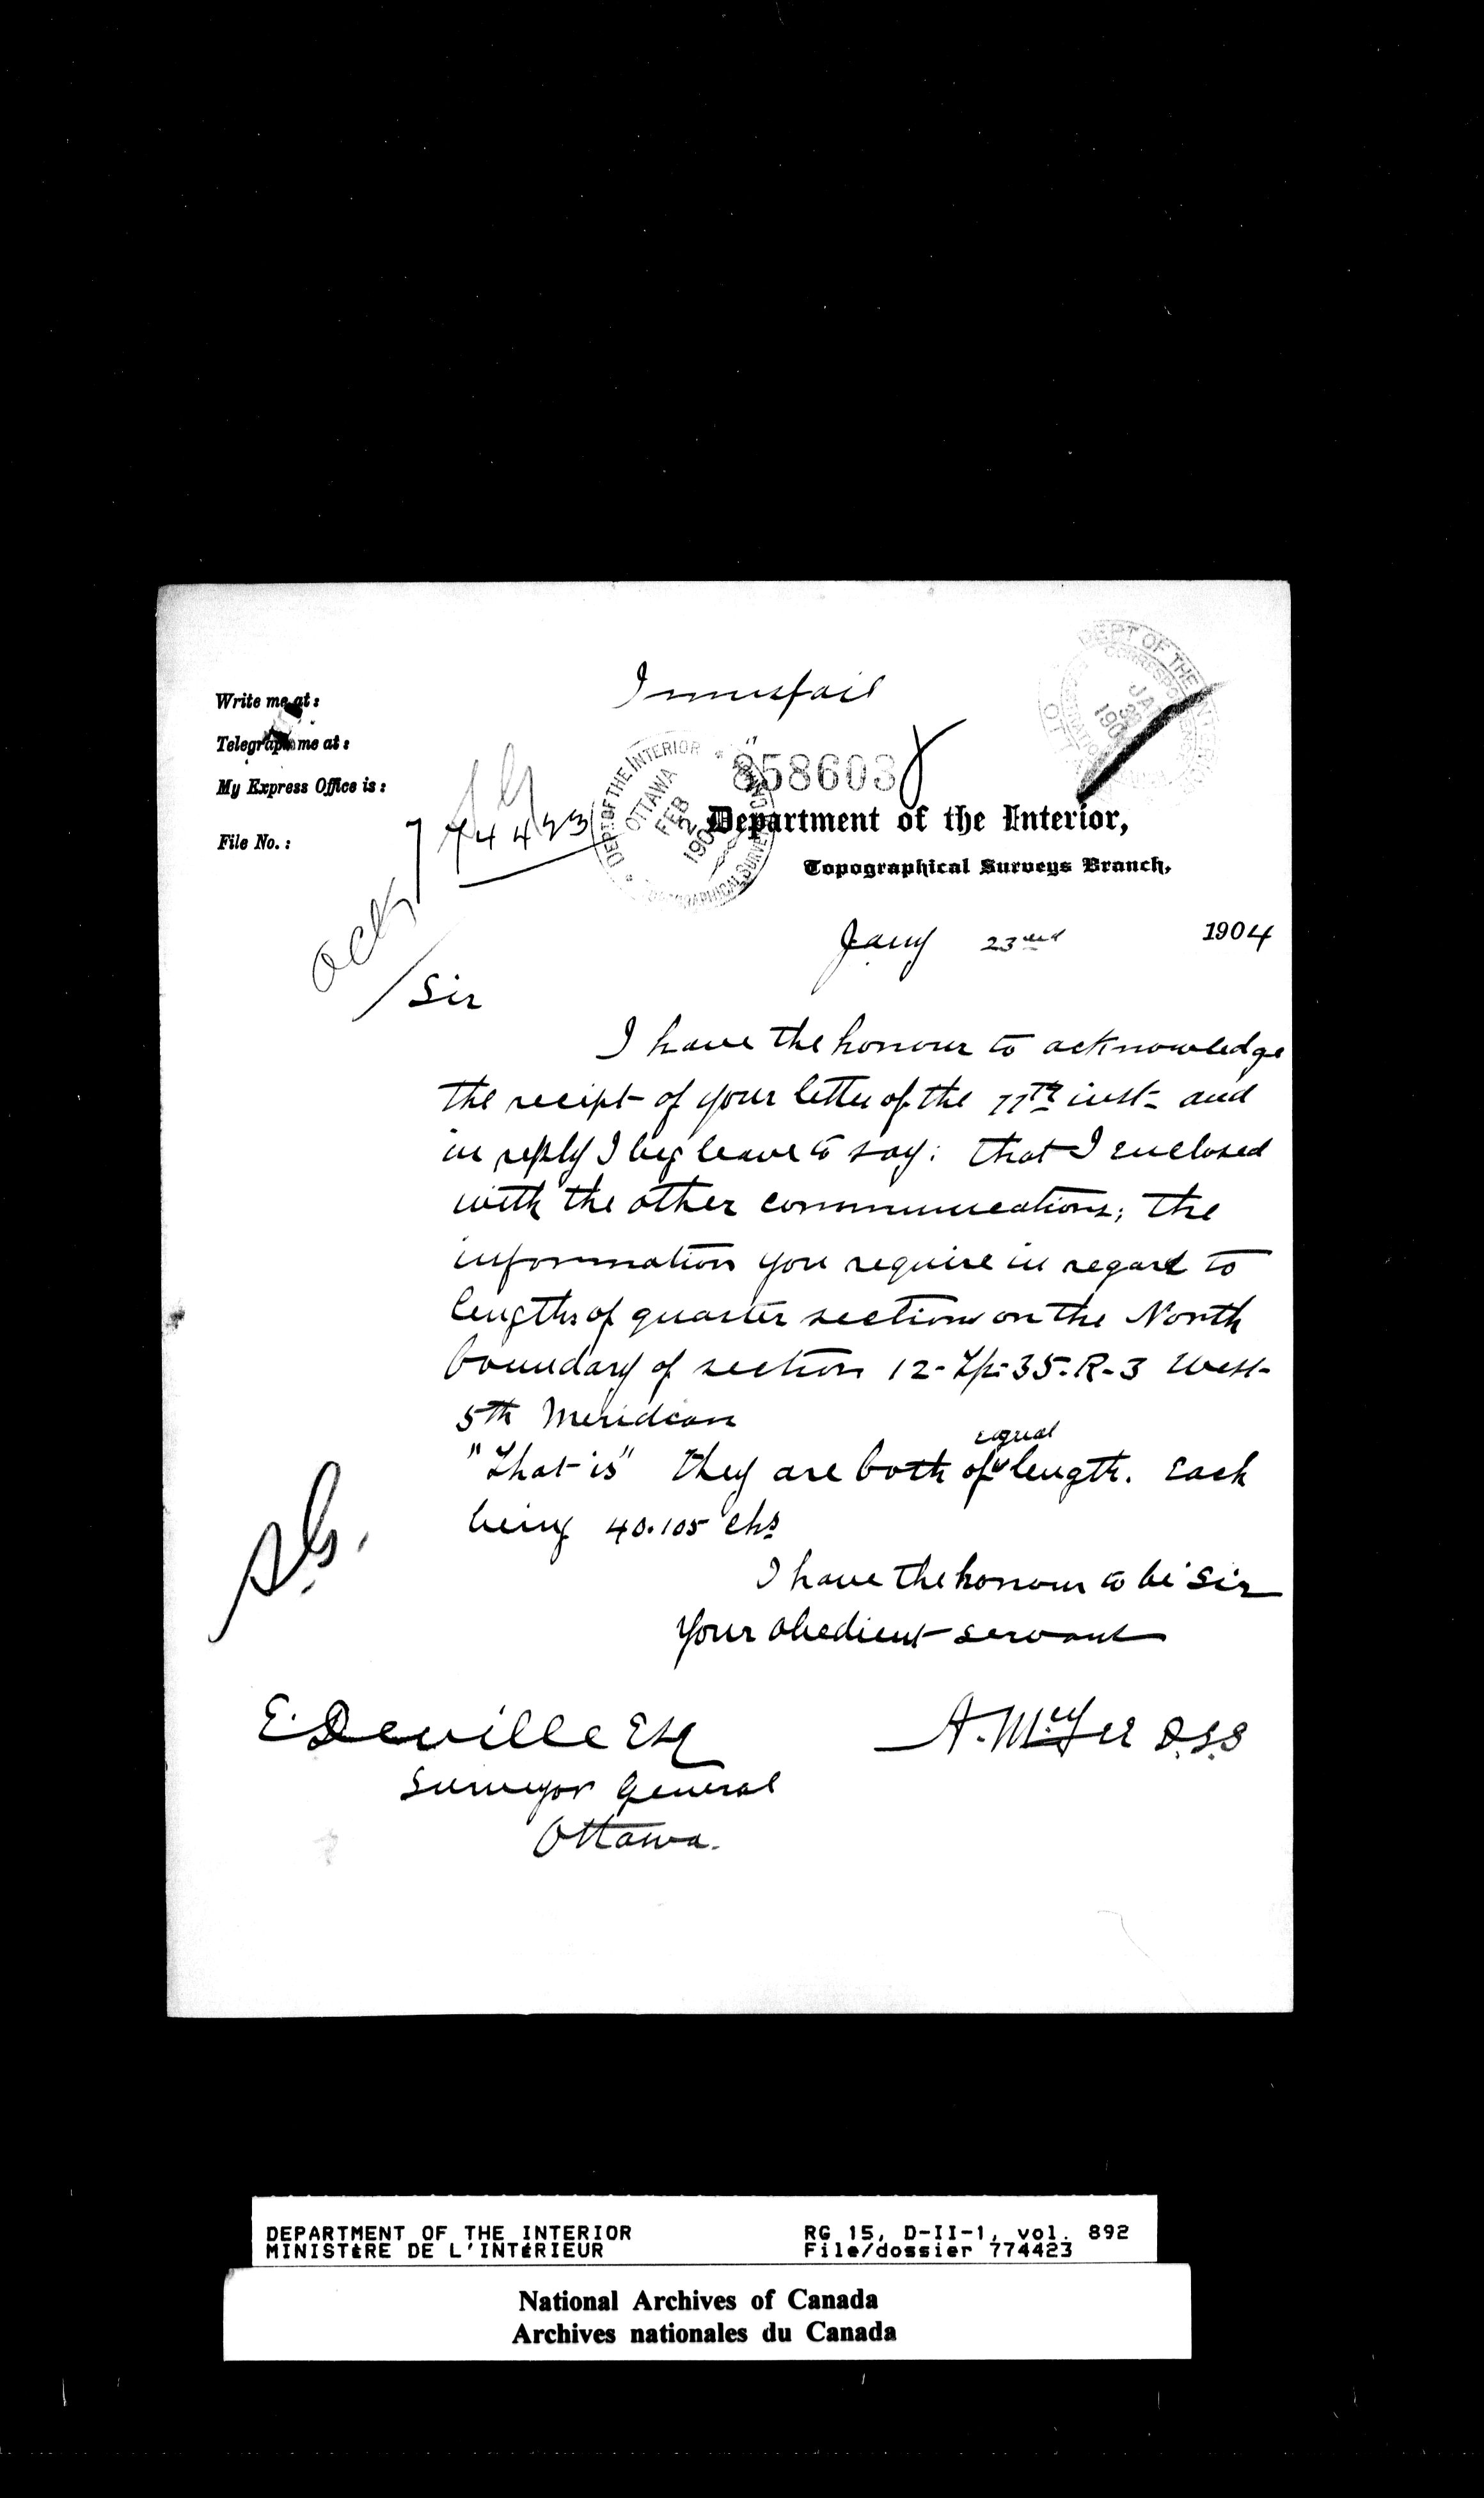 Innisfail
Write me at:
Telegraph me at:
My Express Office is:
File No.:
858603
774423
DEPT. OF THE INTERIOR
OTTAWA
FEB
2
190
TOPOGRAPHICAL SURVEYS BRANCH
DEPT OF THE INTERIOR
CORRESPONDENCE
JAN
30
190
Department of the Interior,
Topographical Surveys Branch,
Jany 23rd 1904
ack
Sir
I have the honour to acknowledge
the receipt of your letter of the 11th inst- and
in reply I beg leave to say: that I enclosed
with the other communications; the
information you require in regard to
lengths of quarter section on the North
boundary of section 12-Tp-35-R-3 West-
5th Meridian
equal
"That is" they are both of length. Each
being 40.105 chs
I have the honour to be Sir
Your obedient servant
A. McFee D.L.S
E. Deville Esq
Surveyor General
Ottawa.
DEPARTMENT OF THE INTERIOR RG 15, D-II-1, vol. 892
MINISTÈRE DE L'INTÉRIEUR File/dossier 774423
National Archives of Canada
Archives nationales du Canada